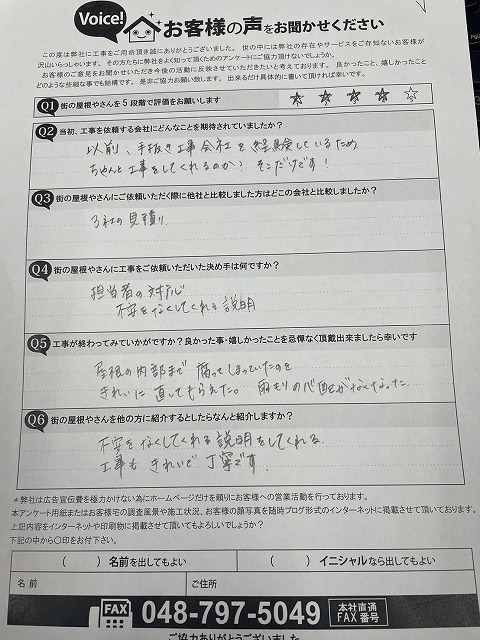 Voice! お客様の声をお聞かせください
この度は弊社に工事をご用命頂き誠にありがとうございました。世の中には弊社の存在やサービスをご存知ないお客様が
沢山いらっしゃいます。その方たちに弊社をよく知って頂くためのアンケートにご協力頂けないでしょうか。
お客様のご意見をお聞かせいただき今後の活動に反映させていただきたいと考えております。良かったこと、嬉しかったこと
どのような些細な事でも結構です。是非ご協力お願い致します。出来るだけ具体的に書いて頂ければ幸いです。
Q1 街の屋根やさんを5段階で評価をお願いします ☆ ☆ ☆ ☆ ☆
Q2 当初、工事を依頼する会社にどんなことを期待されていましたか?
以前、手抜き工事会社を経験しているため
ちゃんと工事をしてくれるのか? そこだけです!
Q3 街の屋根やさんにご依頼いただく際に他社と比較しました方はどこの会社と比較しましたか?
3社の見積り
Q4 街の屋根やさんに工事をご依頼いただいた決め手は何ですか?
担当者の対応
不安をなくしてくれる説明
Q5 工事が終わってみていかがですか?良かった事・嬉しかったことを忌憚なく頂戴出来ましたら幸いです
屋根の内部まで腐ってしまっていたのを
きれいに直してもらえた。雨もりの心配がなくなった。
Q6 街の屋根やさんを他の方に紹介するとしたらなんと紹介しますか?
不安をなくしてくれる説明をしてくれる
工事もきれいで丁寧です
*弊社は広告宣伝費を極力かけない為にホームページだけを頼りにお客様への営業活動を行っております。
本アンケート用紙またはお客様宅の調査風景や施工状況、お客様の顔写真を随時ブログ形式のインターネットに掲載させて頂いております。
上記内容をインターネットや印刷物に掲載させて頂いてもよろしいでしょうか?
下記の中から〇印をお付下さい。
( )名前を出してもよい ( )イニシャルなら出してもよい
名前 ご住所
FAX 048-797-5049 本社直通 FAX番号
ご協力ありがとうございました